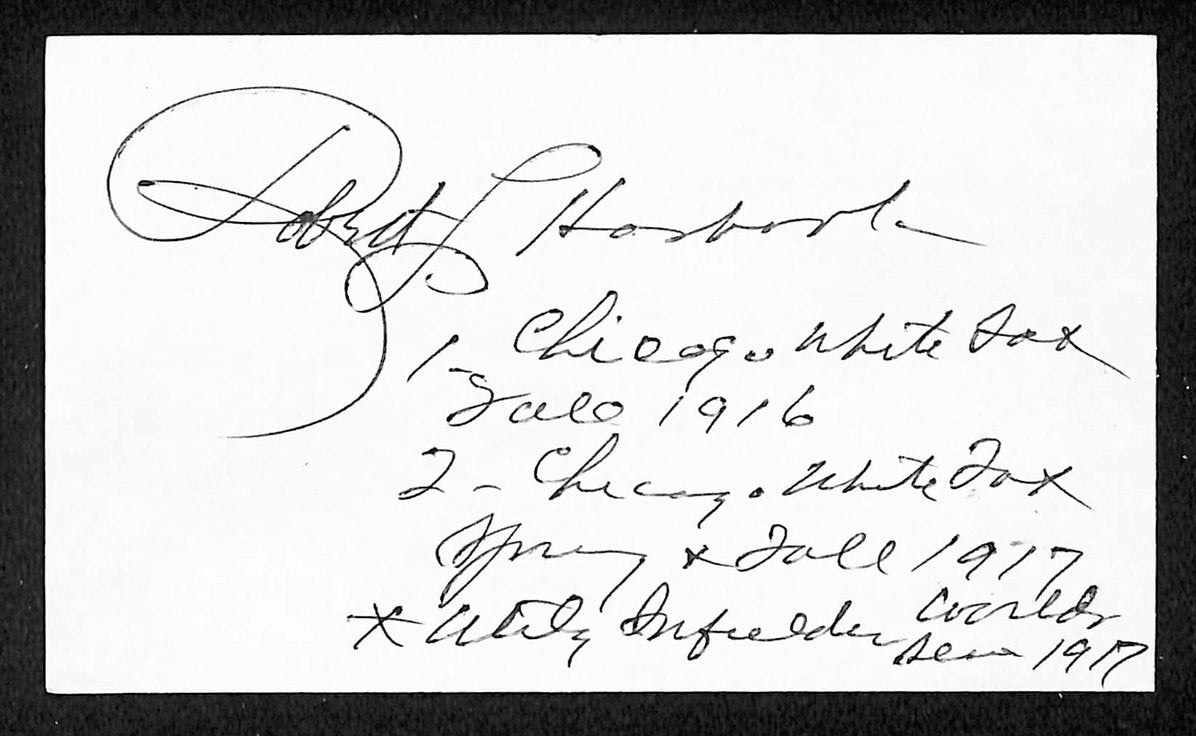 Robert L Hasbrook
1- Chicago White Sox
Fall 1916
2 - Chicago White Sox
Spring & Fall 1917
* Utility Infielder Worlds
Series 1917